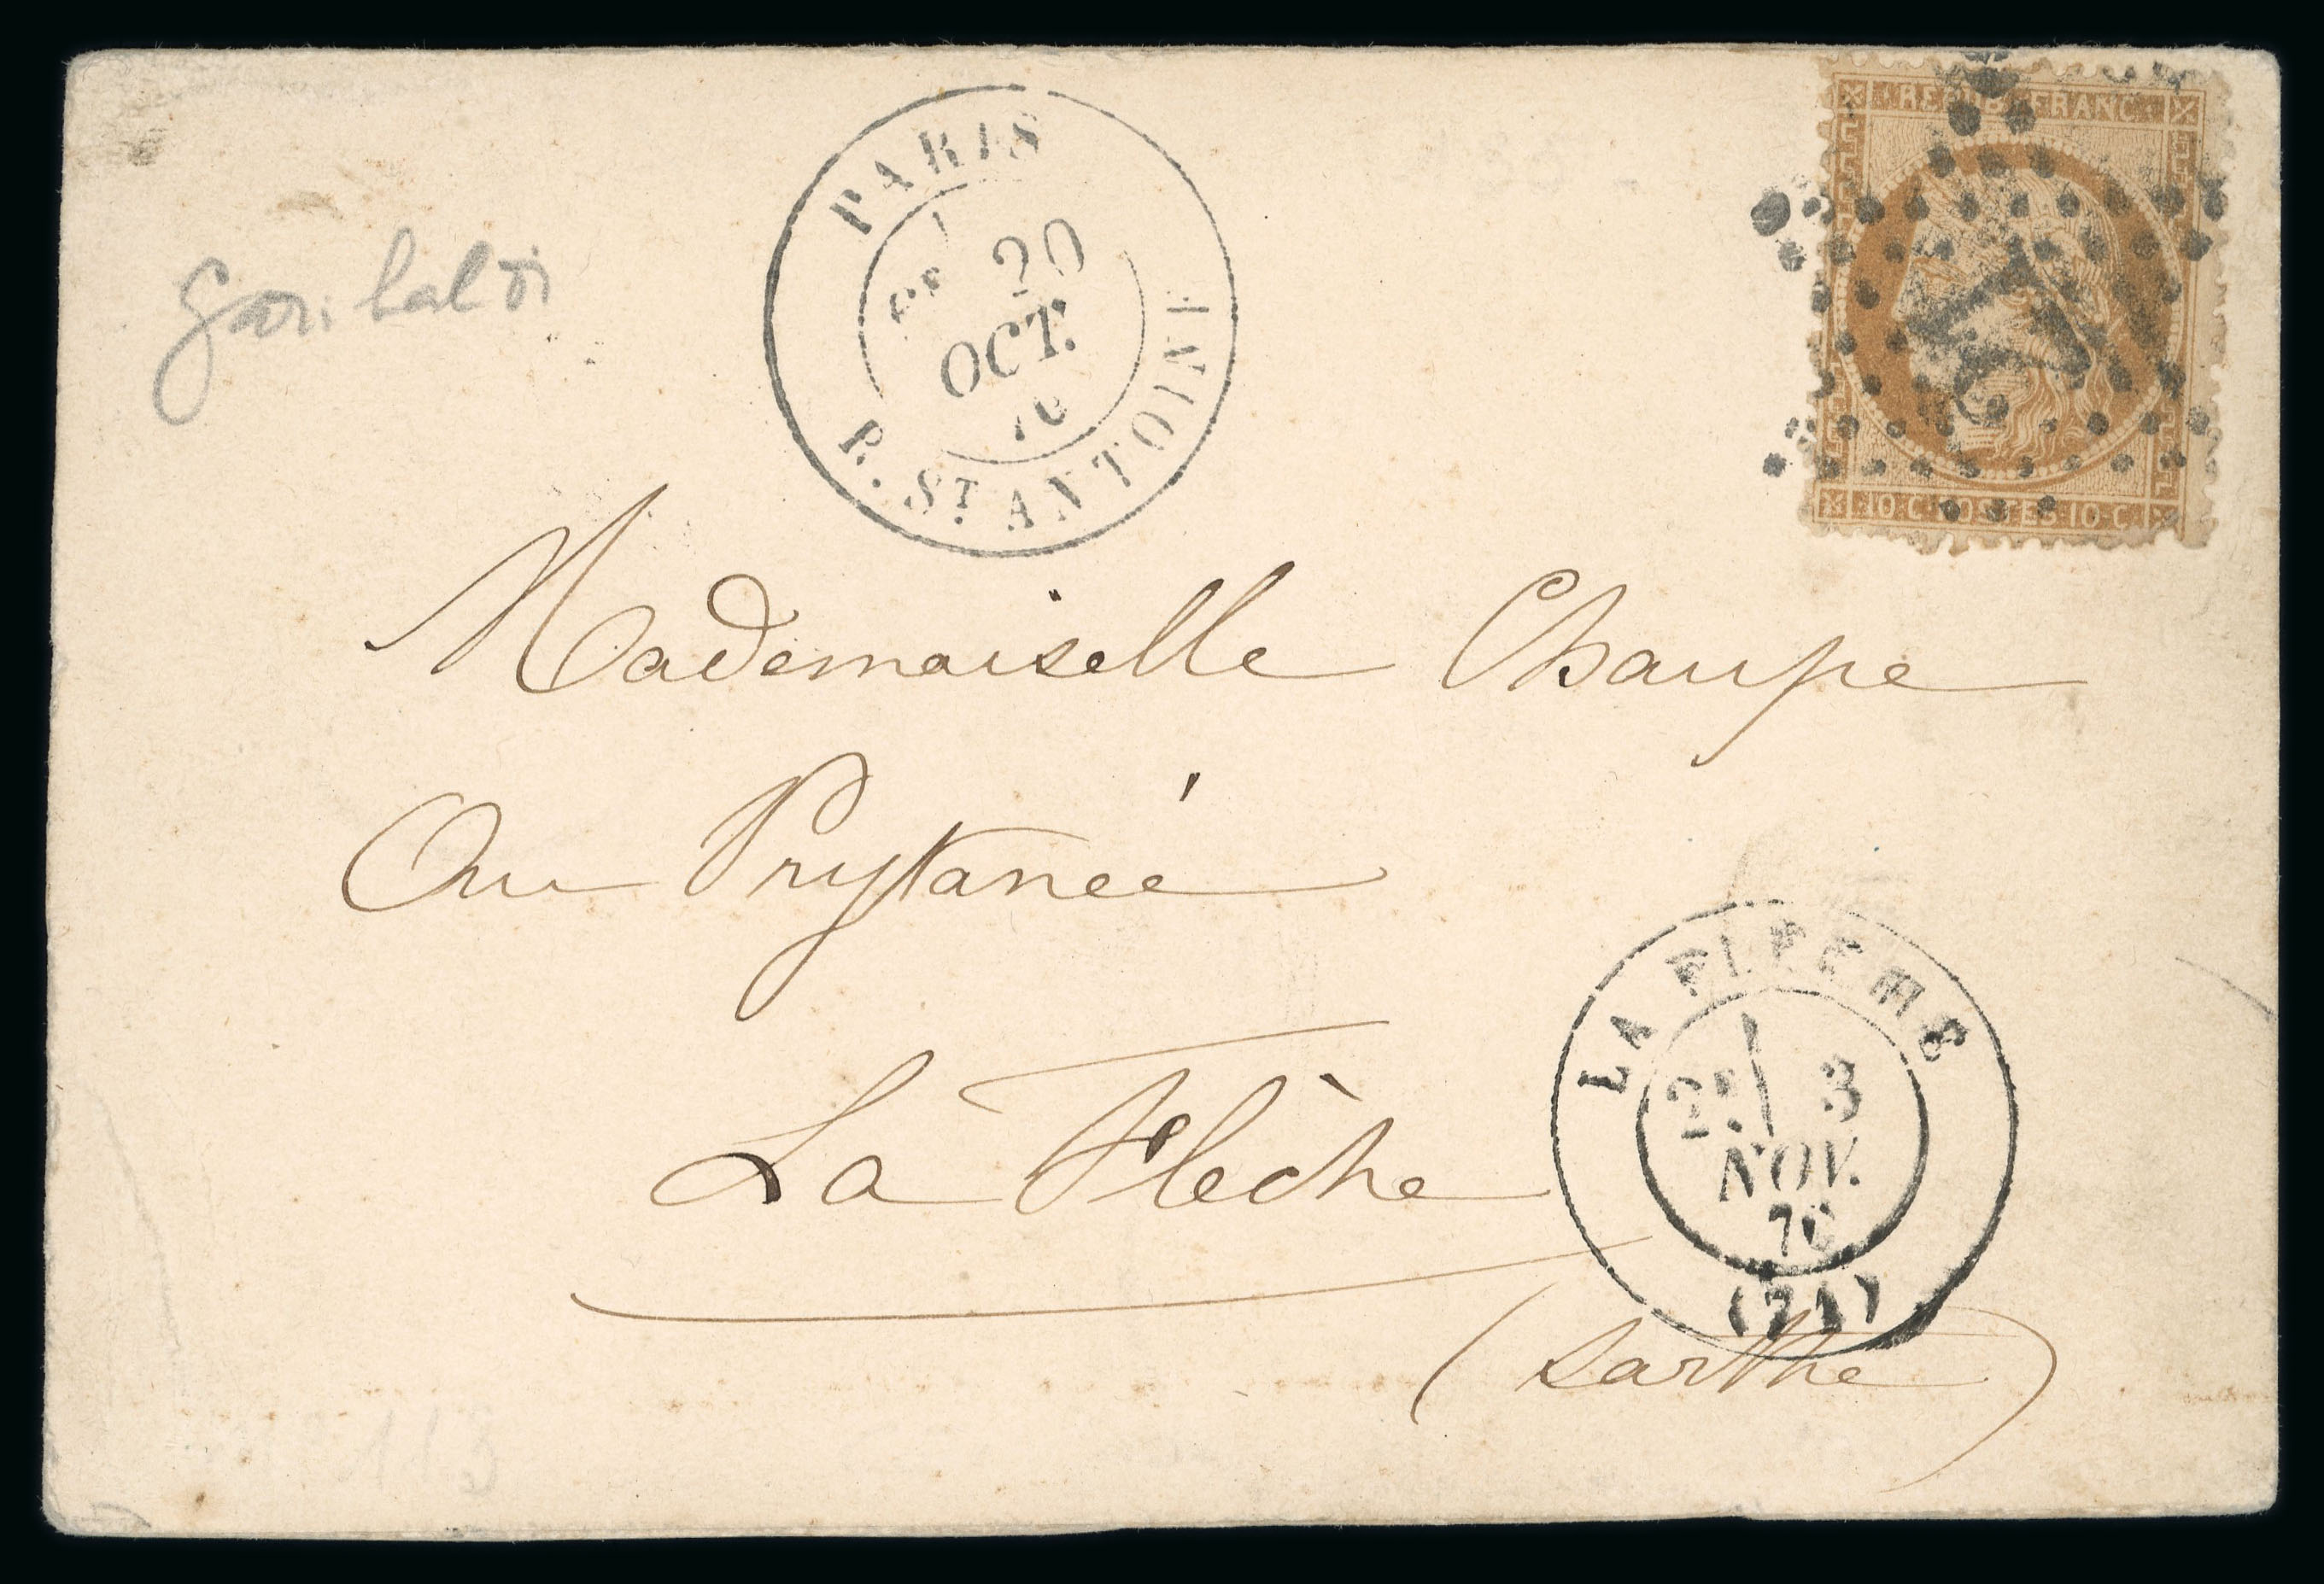 PARIS
20
OCT.
70
R. ST. ANTOINE
REPUB. FRANC.
10·C·POSTES·10·C
Garibaldi
Mademoiselle Chaupe
Au Prytanée
La Flèche
LA FLECHE
2E 3
NOV.
70
(71)
(Sarthe)